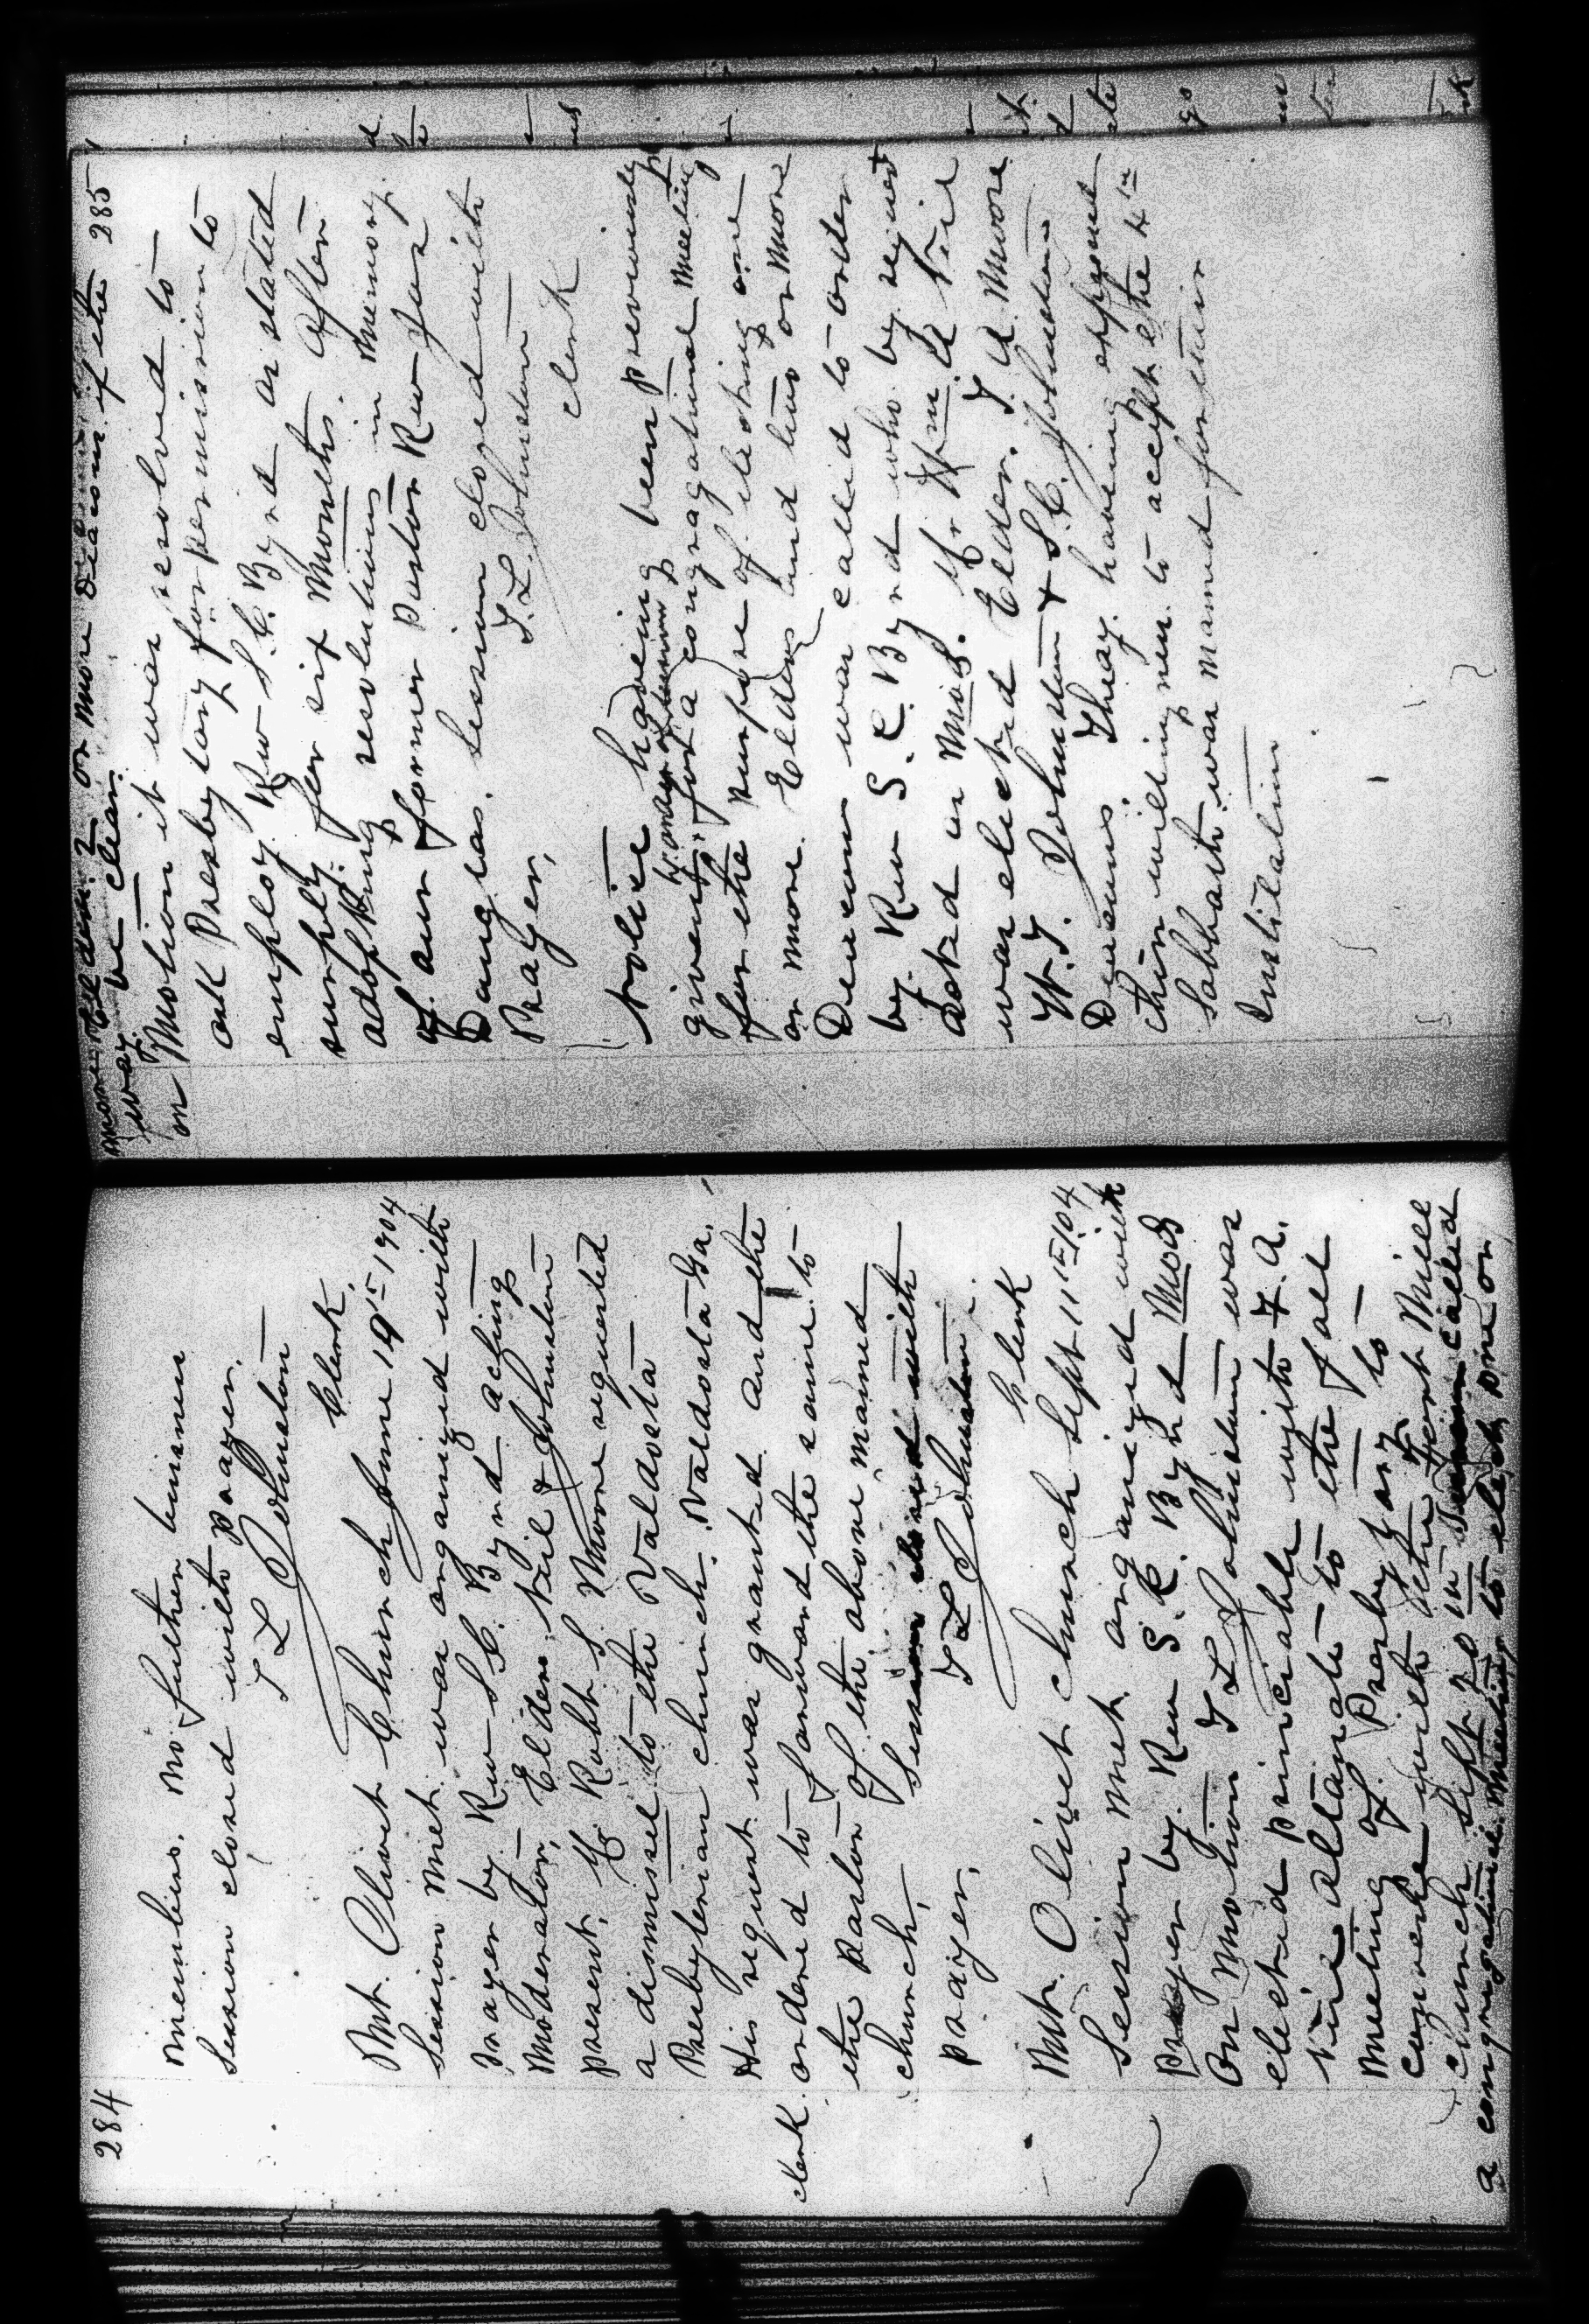 284
members. No further business
Session closed with prayer.
T L Johnston
Clerk
Mt. Olivet Church June 19th 1904
Session met was organized with
prayer by Rev S.C. Byrd acting
Moderator, Elders Neil & Johnston
present, Mr Robt S Moore requested
a dismissel to the Valdosta
Presbyterian church. Valdosta Ga.
His request was granted and the
clerk ordered to forward the same to
the Pastor of the above named
church, Session closed with
prayer.
T L Johnston
Clerk
Mt. Olivet church Sept 11th 1904
Session met organized with
prayer by Rev S. C. Byrd Mod
On Motion T L Johnston was
elected principle with J. A.
Neil altanate to the fall
meeting of Presbytary to
convene with the Fort Mill
church Sept 20 in Session called
a congregational Meeting to elect one or
more Elders. 2 or more Deacons if the 285
way be clear.
on Motion it was resolved to
ask Presbytary for permission to
employ Rev S.C. Byrd as stated
supply for six Months. After
adopting resolutions in memory
of our former pastor Rev Jas
Douglas. Session closed with
Prayer.
T. L. Johnston
clerk
Notice having been previously
given for a congragational Meeting
for the purpose of electing one
or more Elders and two or more
Deacons was called to order
by Rev S. C. Byrd who by request
acted as Mod. Mr Wm A Neil
was elected Elder. J A Moore
W. J. Johnston & S.C. Johnston
Deacons. Theay having expressed
their willingness to accept the 4th
Sabbath was named for their
Instilation